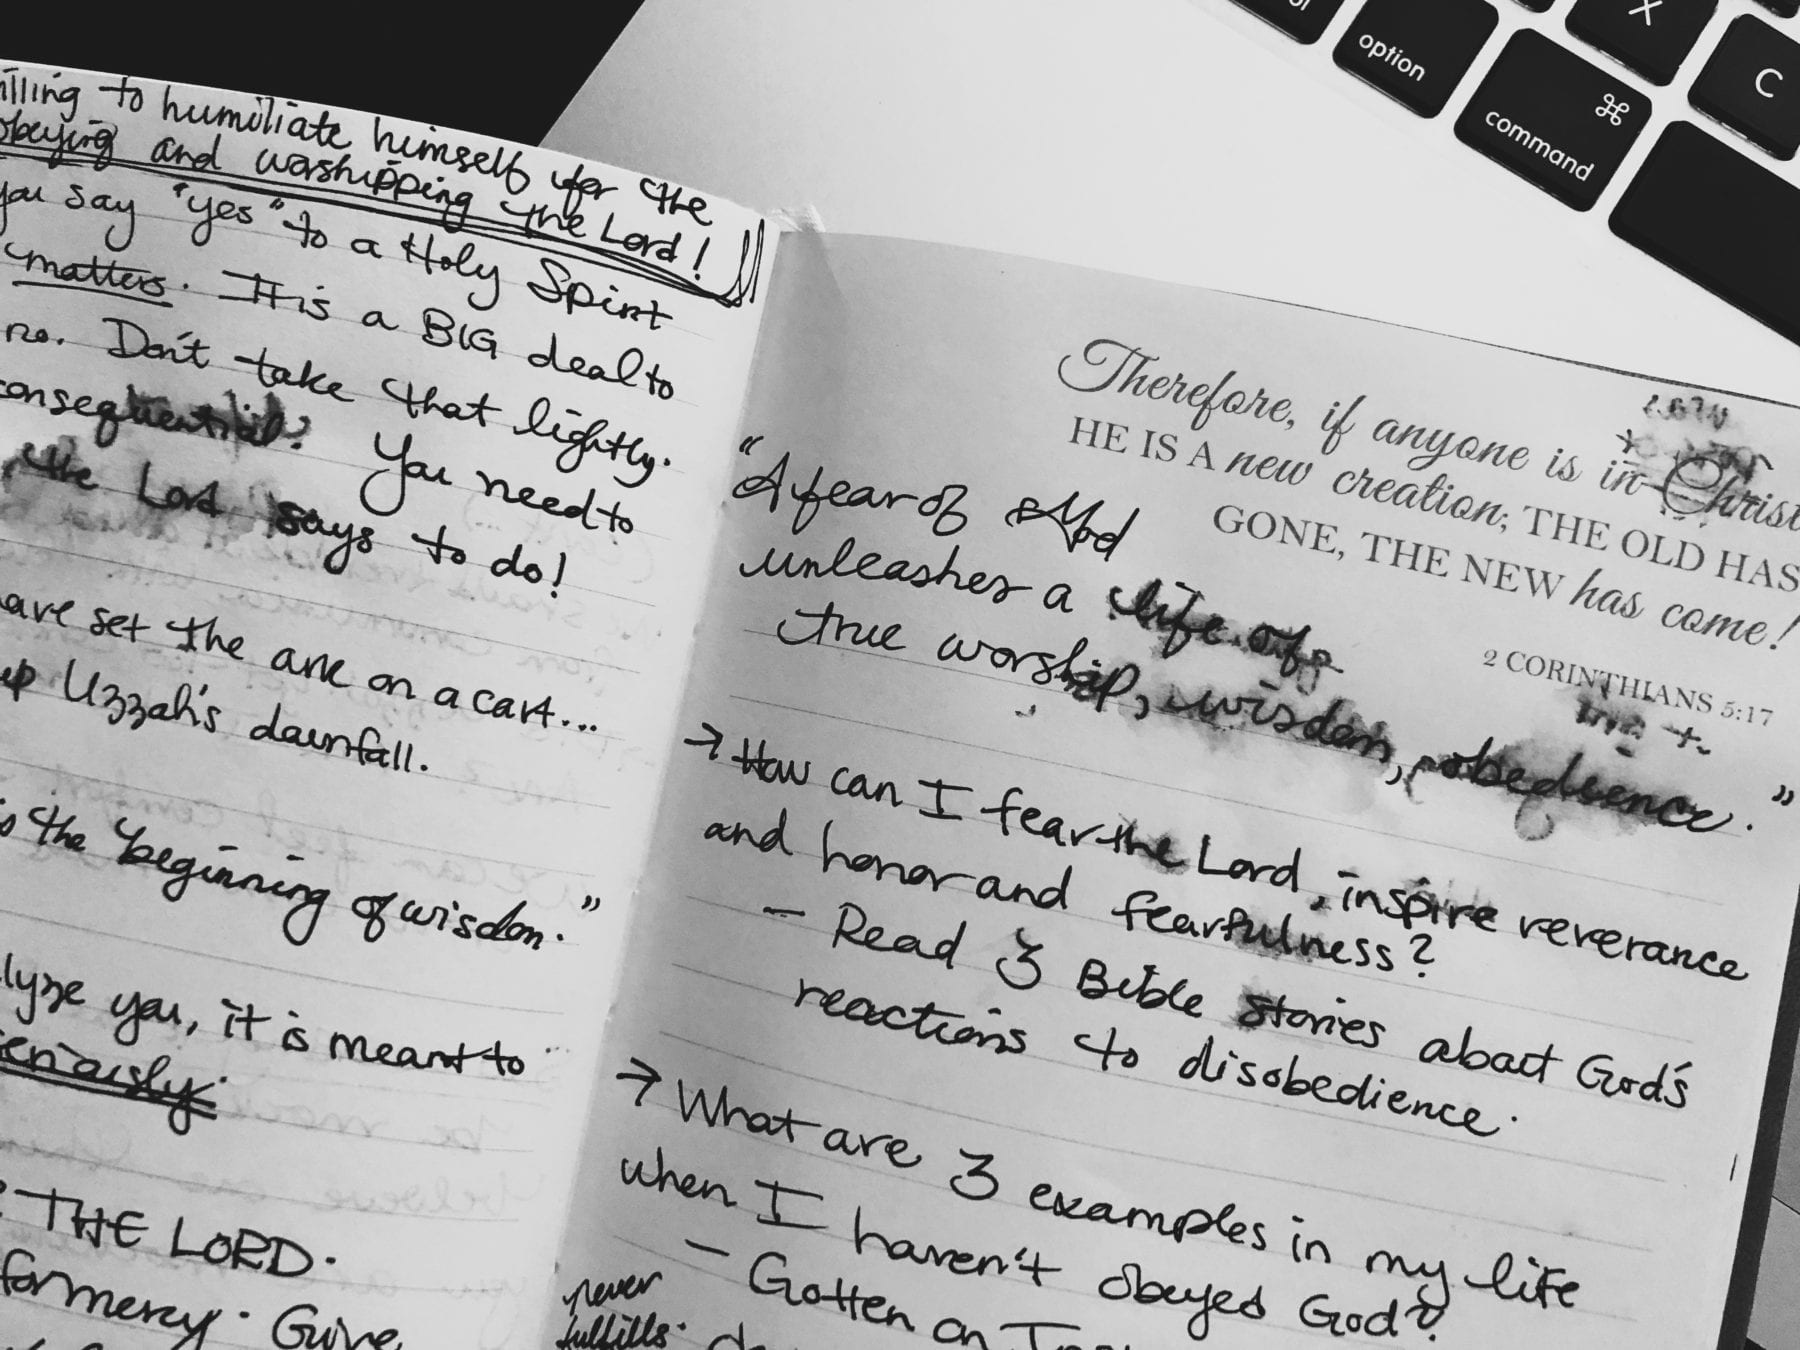 humiliate himself for the
obeying and worshipping the Lord!
you say "yes" to a Holy Spirit
matters. It is a BIG deal to
no. Don't take that lightly.
consequential? You need to
the Lord says to do!
set the ark on a cart...
up Uzzah's downfall.
the beginning of wisdom."
you, it is meant to
seriously.
THE LORD.
for mercy. Give
Therefore, if anyone is in Christ
HE IS A new creation; THE OLD HAS
GONE, THE NEW has come!
2 CORINTHIANS 5:17
"A fear of God
unleashes a life of
true worship, wisdom, obedience."
→ How can I fear the Lord, inspire reverance
and honor and fearfulness?
- Read 3 Bible stories about God's
reactions to disobedience.
→ What are 3 examples in my life
when I haven't obeyed God?
- Gotten on
never
fulfills.
option
⌘
command
X
C